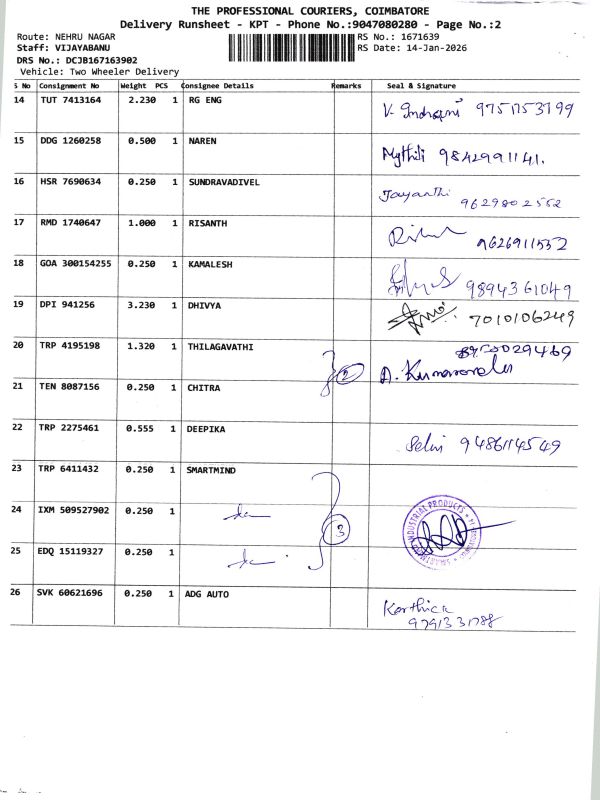 THE PROFESSIONAL COURIERS, COIMBATORE
Delivery Runsheet - KPT - Phone No.:9047080280 - Page No.:2
Route: NEHRU NAGAR
Staff: VIJAYABANU
DRS No.: DCJB167163902
Vehicle: Two Wheeler Delivery
RS No.: 1671639
RS Date: 14-Jan-2026
S No Consignment No Weight PCS Consignee Details Remarks Seal & Signature
14 TUT 7413164 2.230 1 RG ENG V. Indrani
15 DDG 1260258 0.500 1 NAREN Mythili 9842991141.
16 HSR 7690634 0.250 1 SUNDRAVADIVEL Jayanthi 9629802552
17 RMD 1740647 1.000 1 RISANTH 9626911532
18 GOA 300154255 0.250 1 KAMALESH 9894361049
19 DPI 941256 3.230 1 DHIVYA 7010106249
20 TRP 4195198 1.320 1 THILAGAVATHI
21 TEN 8087156 0.250 1 CHITRA 2
22 TRP 2275461 0.555 1 DEEPIKA Selvi 9486114549
23 TRP 6411432 0.250 1 SMARTMIND
24 IXM 509527902 0.250 1 3 INDUSTRIAL PRODUCTS
25 EDQ 15119327 0.250 1
26 SVK 60621696 0.250 1 ADG AUTO Karthick
9791331788